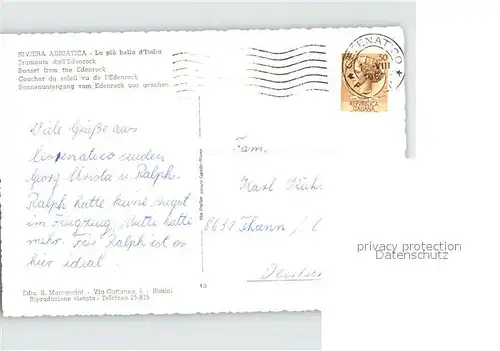 RIVIERA ADRIATICA - La più bella d'Italia
Tramonto dall'Edenrock
Sunset from the Edenrock
Coucher du soleil vu de l'Edenrock
Sonnenuntergang vom Edenrock aus gesehen
CESENATICO
30
VIII
REPVBBLICA
ITALIANA
Viele Grüße aus
Cesenatico senden
Georg Ursula u Ralph.
Ralph hatte keine Angst
im Flugzeug, Mutti hatte
mehr. Für Ralph ist es
hier ideal.
Fam.
Karl
8631 Thann
Deutsch
privacy protection
Datenschutz
Ediz. B. - Via Cattaneo, 6 - Rimini
Riproduzione vietata - Telefono 25.815